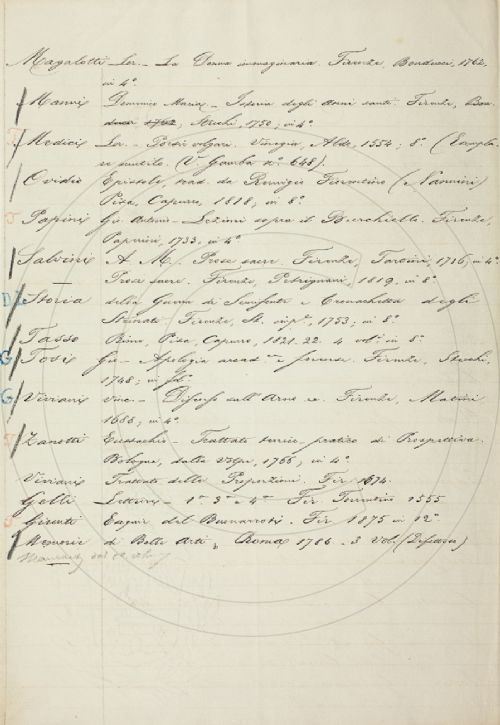 Magalotti Lor. - La Donna immaginaria. Firenze, Bonducci, 1762,
in 4°.
Manni Domenico Maria - Istoria degli Anni santi. Firenze, Bon
ducci 1762, Stecchi, 1750, in 4°.
Medici Lor. - Poesie volgari. Vinegia, Aldo, 1554; 8°. (Esempla-
re mutilo. (V. Gamba n° 648).
Ovidio Epistole, trad. da Remigio Fiorentino (Nannini)
Pisa, Capurro, 1818, in 8°.
J Papini Gio. Antonio - Lezioni sopra il Burchiello. Firenze,
Paperini, 1733, in 4°.
Salvini A. M. Prose sacre. Firenze, Tartini, 1716, in 4°.
Prose sacre. Firenze, Petrignani, 1819, in 8°.
Storia della Guerra di Semifonte e Cronachetta degli
Strinati. Firenze, St. imp.le, 1753; in 8°.
Tasso Rime, Pisa, Capurro, 1821.22. 4 vol. in 8°.
G Tosi Gio - Apologia Firenze, Stecchi,
1748; in fol.
G Viviani Vinc. - Discorso sull'Arno ec. Firenze, Matini
1688, in 4°.
Zanotti Eustachio - Trattato teorico pratico di Prospettiva.
Bologna, dalla Volpe, 1766, in 4°.
Viviani Trattato delle Proporzioni. Fir. 1674.
Gelli Letture - 1ª 2ª e 4ª Fir. Torrentino 1555
Giscuti del Buonarroti. Fir 1875 in 12°.
Memorie di Belle Arti, Roma 1786. 3 Vol. (Difettoso)